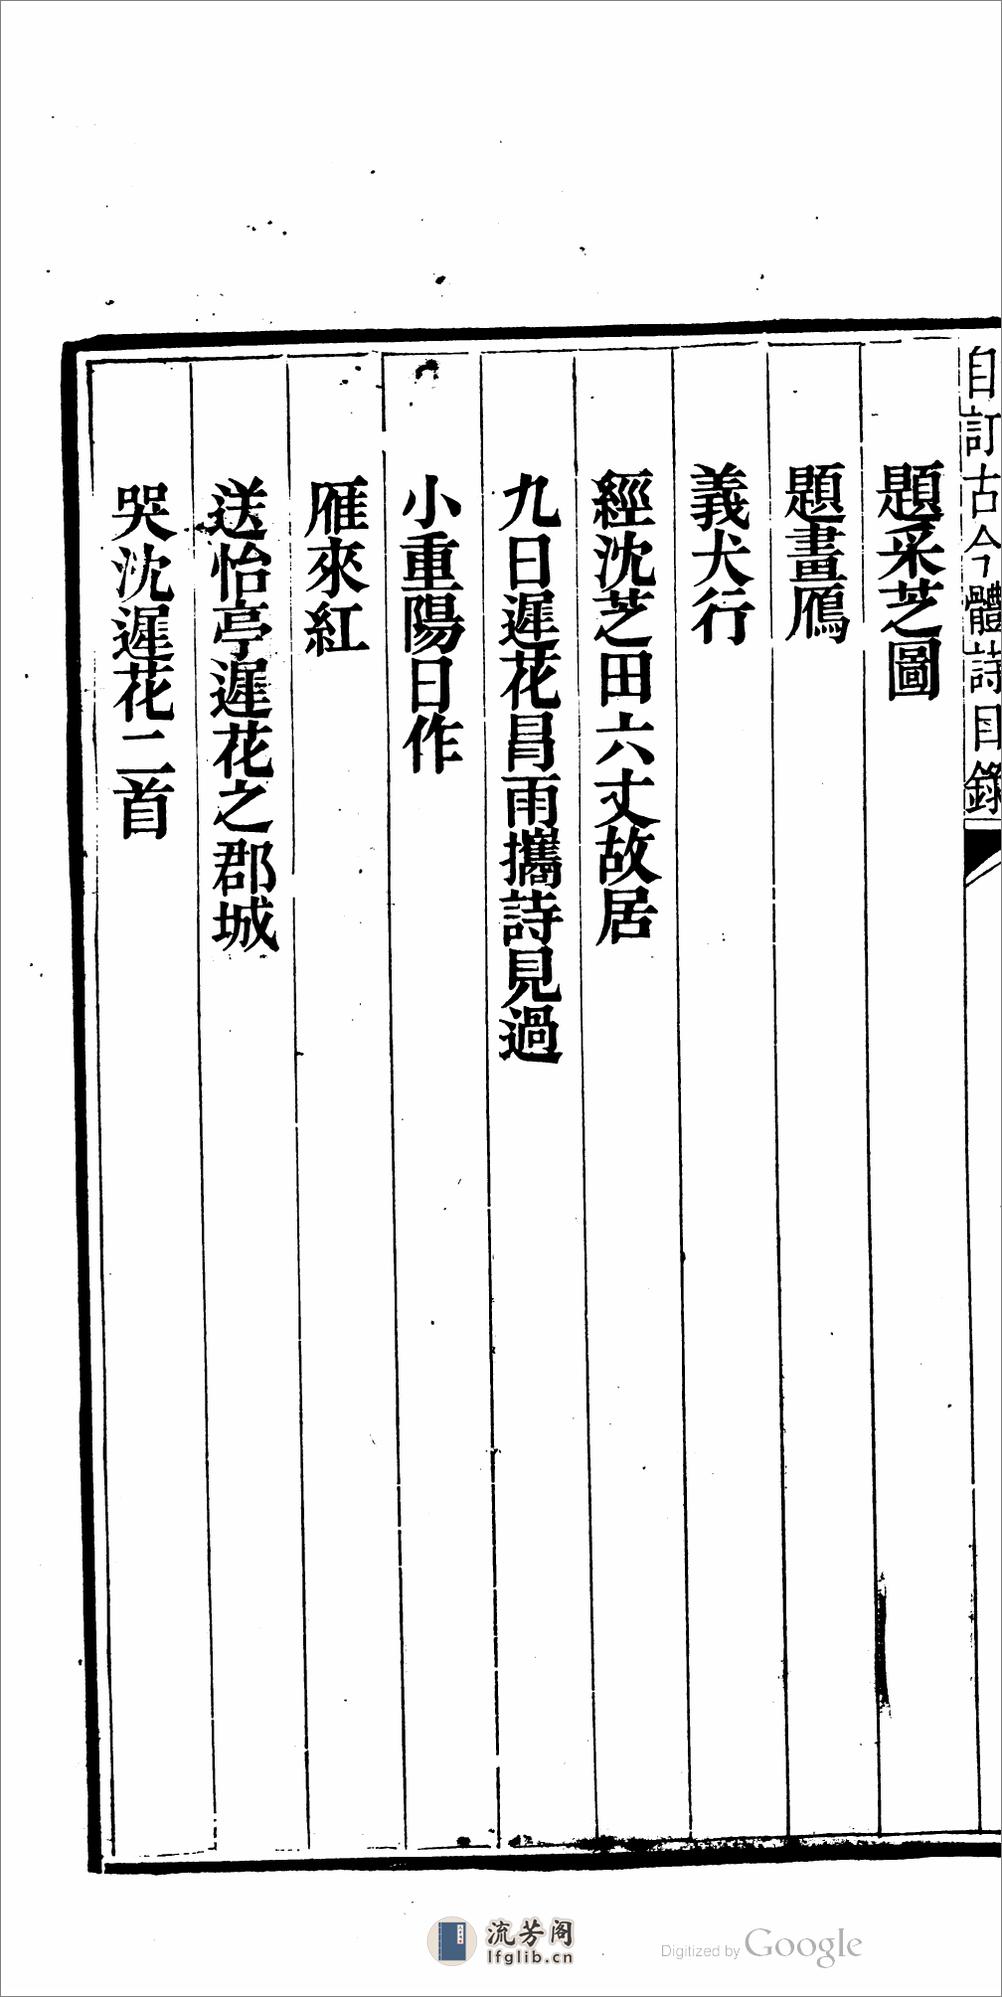 自訂古今體詩目錄
題采芝圖
題畫鴈
義犬行
經沈芝田六丈故居
九日遲花冒雨攜詩見過
小重陽日作
雁來紅
送怡亭遲花之郡城
哭沈遲花二首
流芳阁
lfglib.cn
Digitized by Google